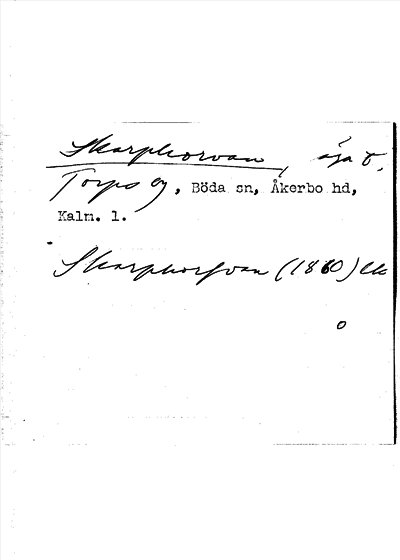 Skarphorvan, äga t.
Torps by, Böda sn, Åkerbo hd,
Kalm. l.
Skarphorfvan (1860) Ek
o